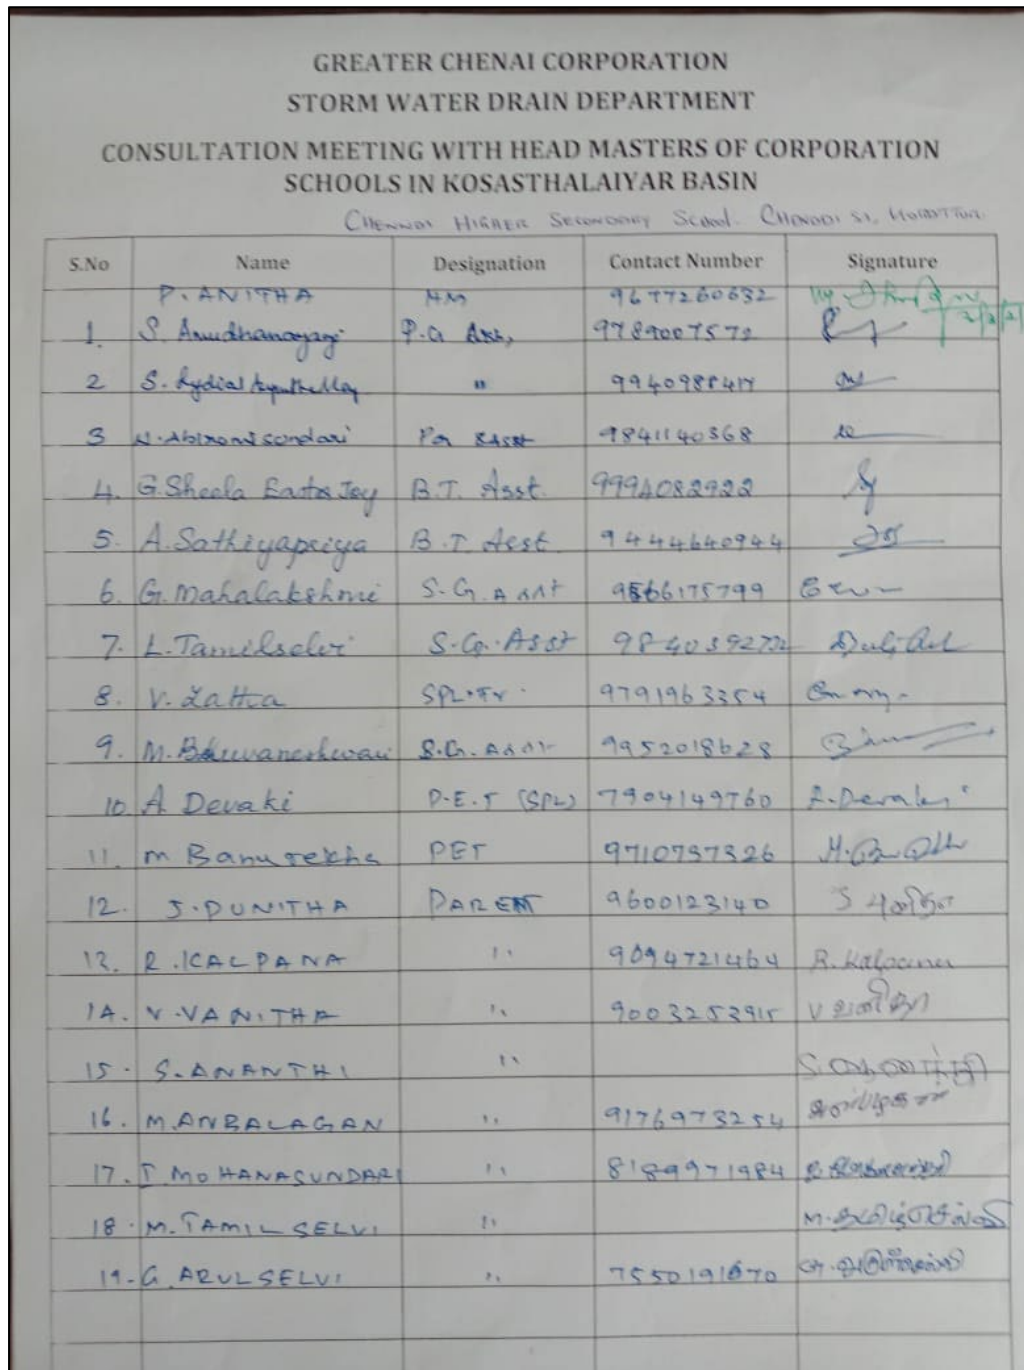 GREATER CHENAI CORPORATION
STORM WATER DRAIN DEPARTMENT
CONSULTATION MEETING WITH HEAD MASTERS OF CORPORATION
SCHOOLS IN KOSASTHALAIYAR BASIN
CHENNAI HIGHER SECONDARY School. CHENNAI
S.No Name Designation Contact Number Signature
P. ANITHA HM 9677260632
1. S. Amudhanayagi P.G Asst, 9789007572
2 S. Lydial " 9940988417
3 N. Abiromisundari 9841140368
4. G. Sheela Easter Joy B.T. Asst. 9994082922
5. A. Sathiyapriya B.T. Asst 9444640944
6. G. Mahalakshmi S.G. Asst 9566175799
7. L. Tamilselvi S.G. Asst 9840392732
8. V. Latha SPL.Tr. 9791963354
9. M. Bhuvaneshwari S.G. Asst 9952018628
10. A Devaki P.E.T (SPL) 7904149760 A. Devaki
11. M Banurekha PET 9710737326
12. J. PUNITHA PARENT 9600123140 J புனிதா
13. R. KALPANA " 9094721464 R. Kalpana
14. V. VANITHA " 9003253915 V வனிதா
15. S. ANANTHI " S. ஆனந்தி
16. M. ANBALAGAN " 9176973254 அன்பழகன்
17. T. MOHANASUNDARI " 8189971984
18. M. TAMIL SELVI " M. தமிழ்செல்வி
19. G. ARULSELVI " 7550191670 அருள்செல்வி